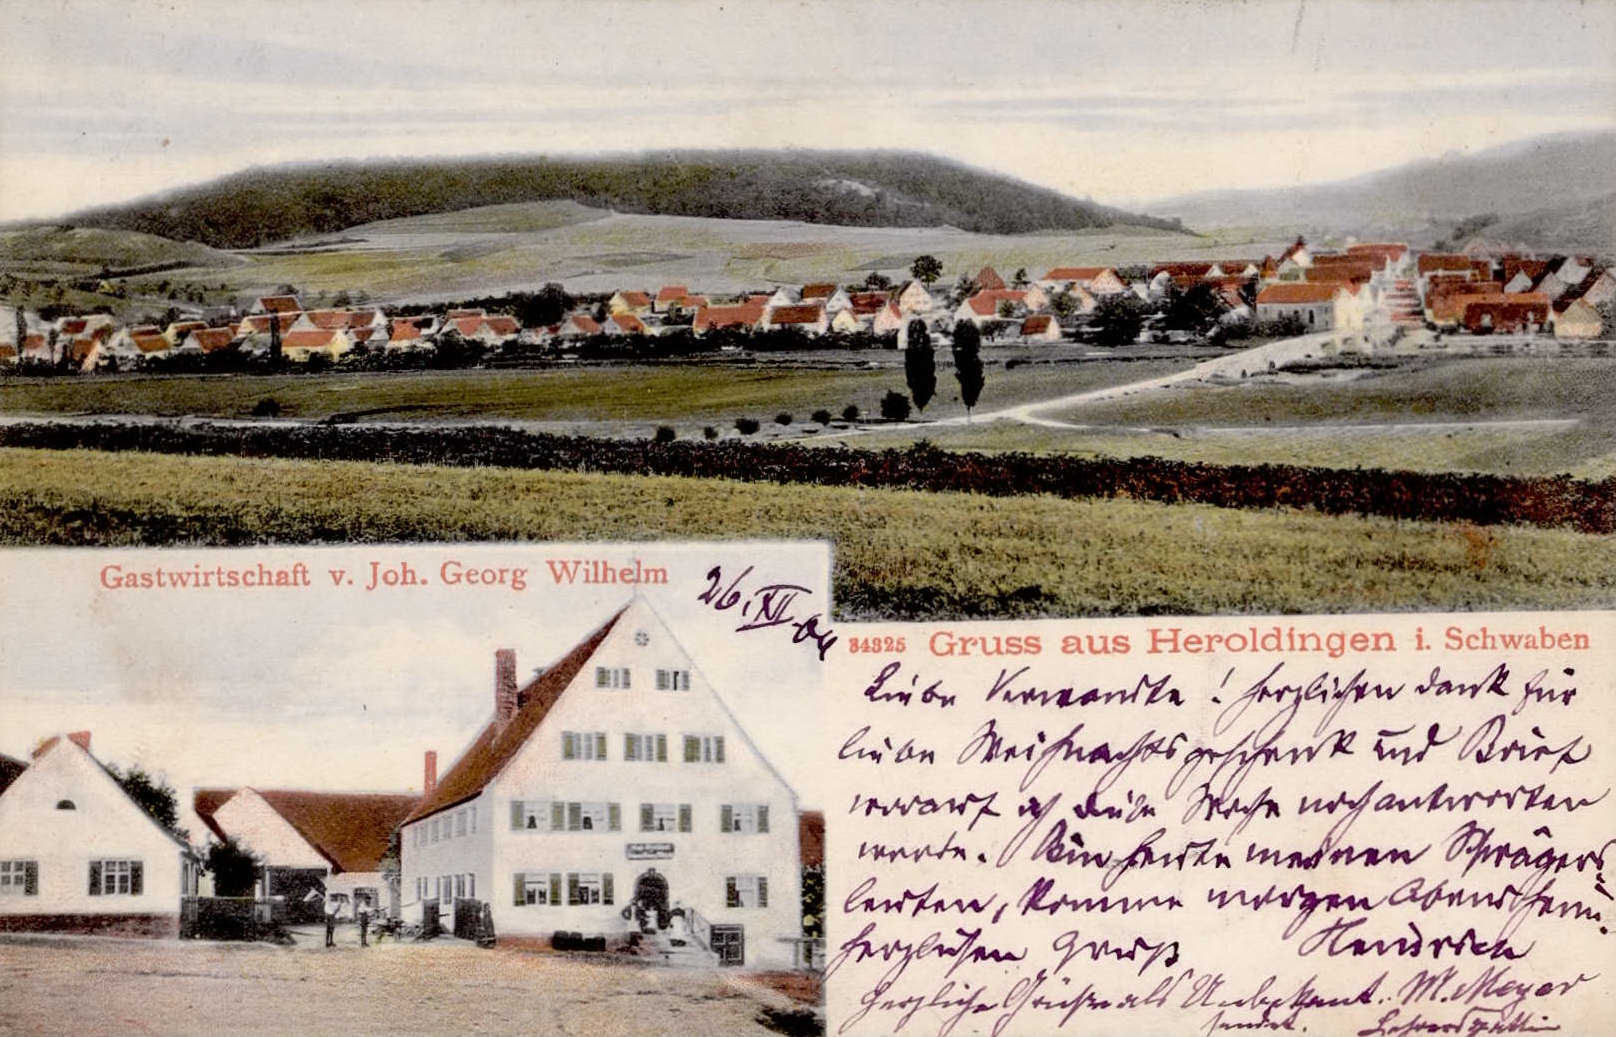 Gastwirtschaft v. Joh. Georg Wilhelm
26. XII. 04
34325 Gruss aus Heroldingen i. Schwaben
Liebe Verwandte! Herzlichen Dank für
liebe Weihnachtsgeschenk und Brief
worauf ich diese Woche noch antworten
werde. Bin heute meinen Schwägers-
leuten, komme morgen Abend heim.
Herzlichen Gruß
Herzliche Grüße als Unbekannt. M. Meyer
sendet. Lehrersgattin